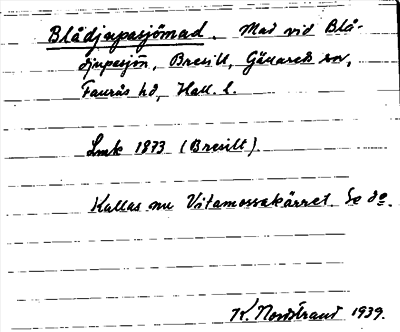 Blådjupasjömad. Mad vid Blå-
djupasjön, Bresilt, Gällareds sn,
Faurås hd, Hall. l.
Lmk 1873 (Bresilt).
Kallas nu Vitamossakärret. Se do.
K. Nordstrand 1939.